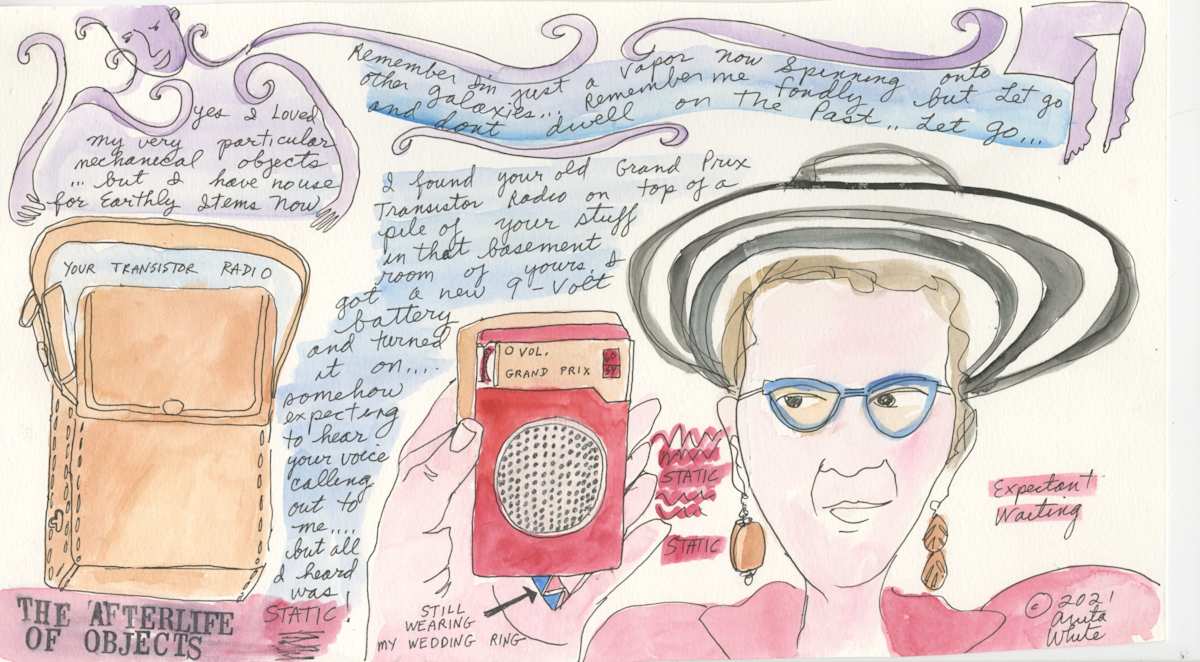 Remember I'm just a vapor now spinning onto
other galaxies... Remember me fondly but Let go
and don't dwell on The Past.. Let go...
yes I Loved
my very particular
mechanical objects
... but I have no use
for Earthly Items Now
YOUR TRANSISTOR RADIO
I found your old Grand Prix
Transistor Radio on top of a
pile of your stuff
in that basement
room of yours. I
got a new 9-Volt
battery
and turned
it on....
somehow
expecting
to hear
your voice
calling
out to
me....
but all
I heard
was
STATIC!
O VOL.
GRAND PRIX
STATIC
STATIC
Expectant
Waiting
STILL
WEARING
MY WEDDING RING
THE AFTERLIFE
OF OBJECTS
© 2021
Anita
White